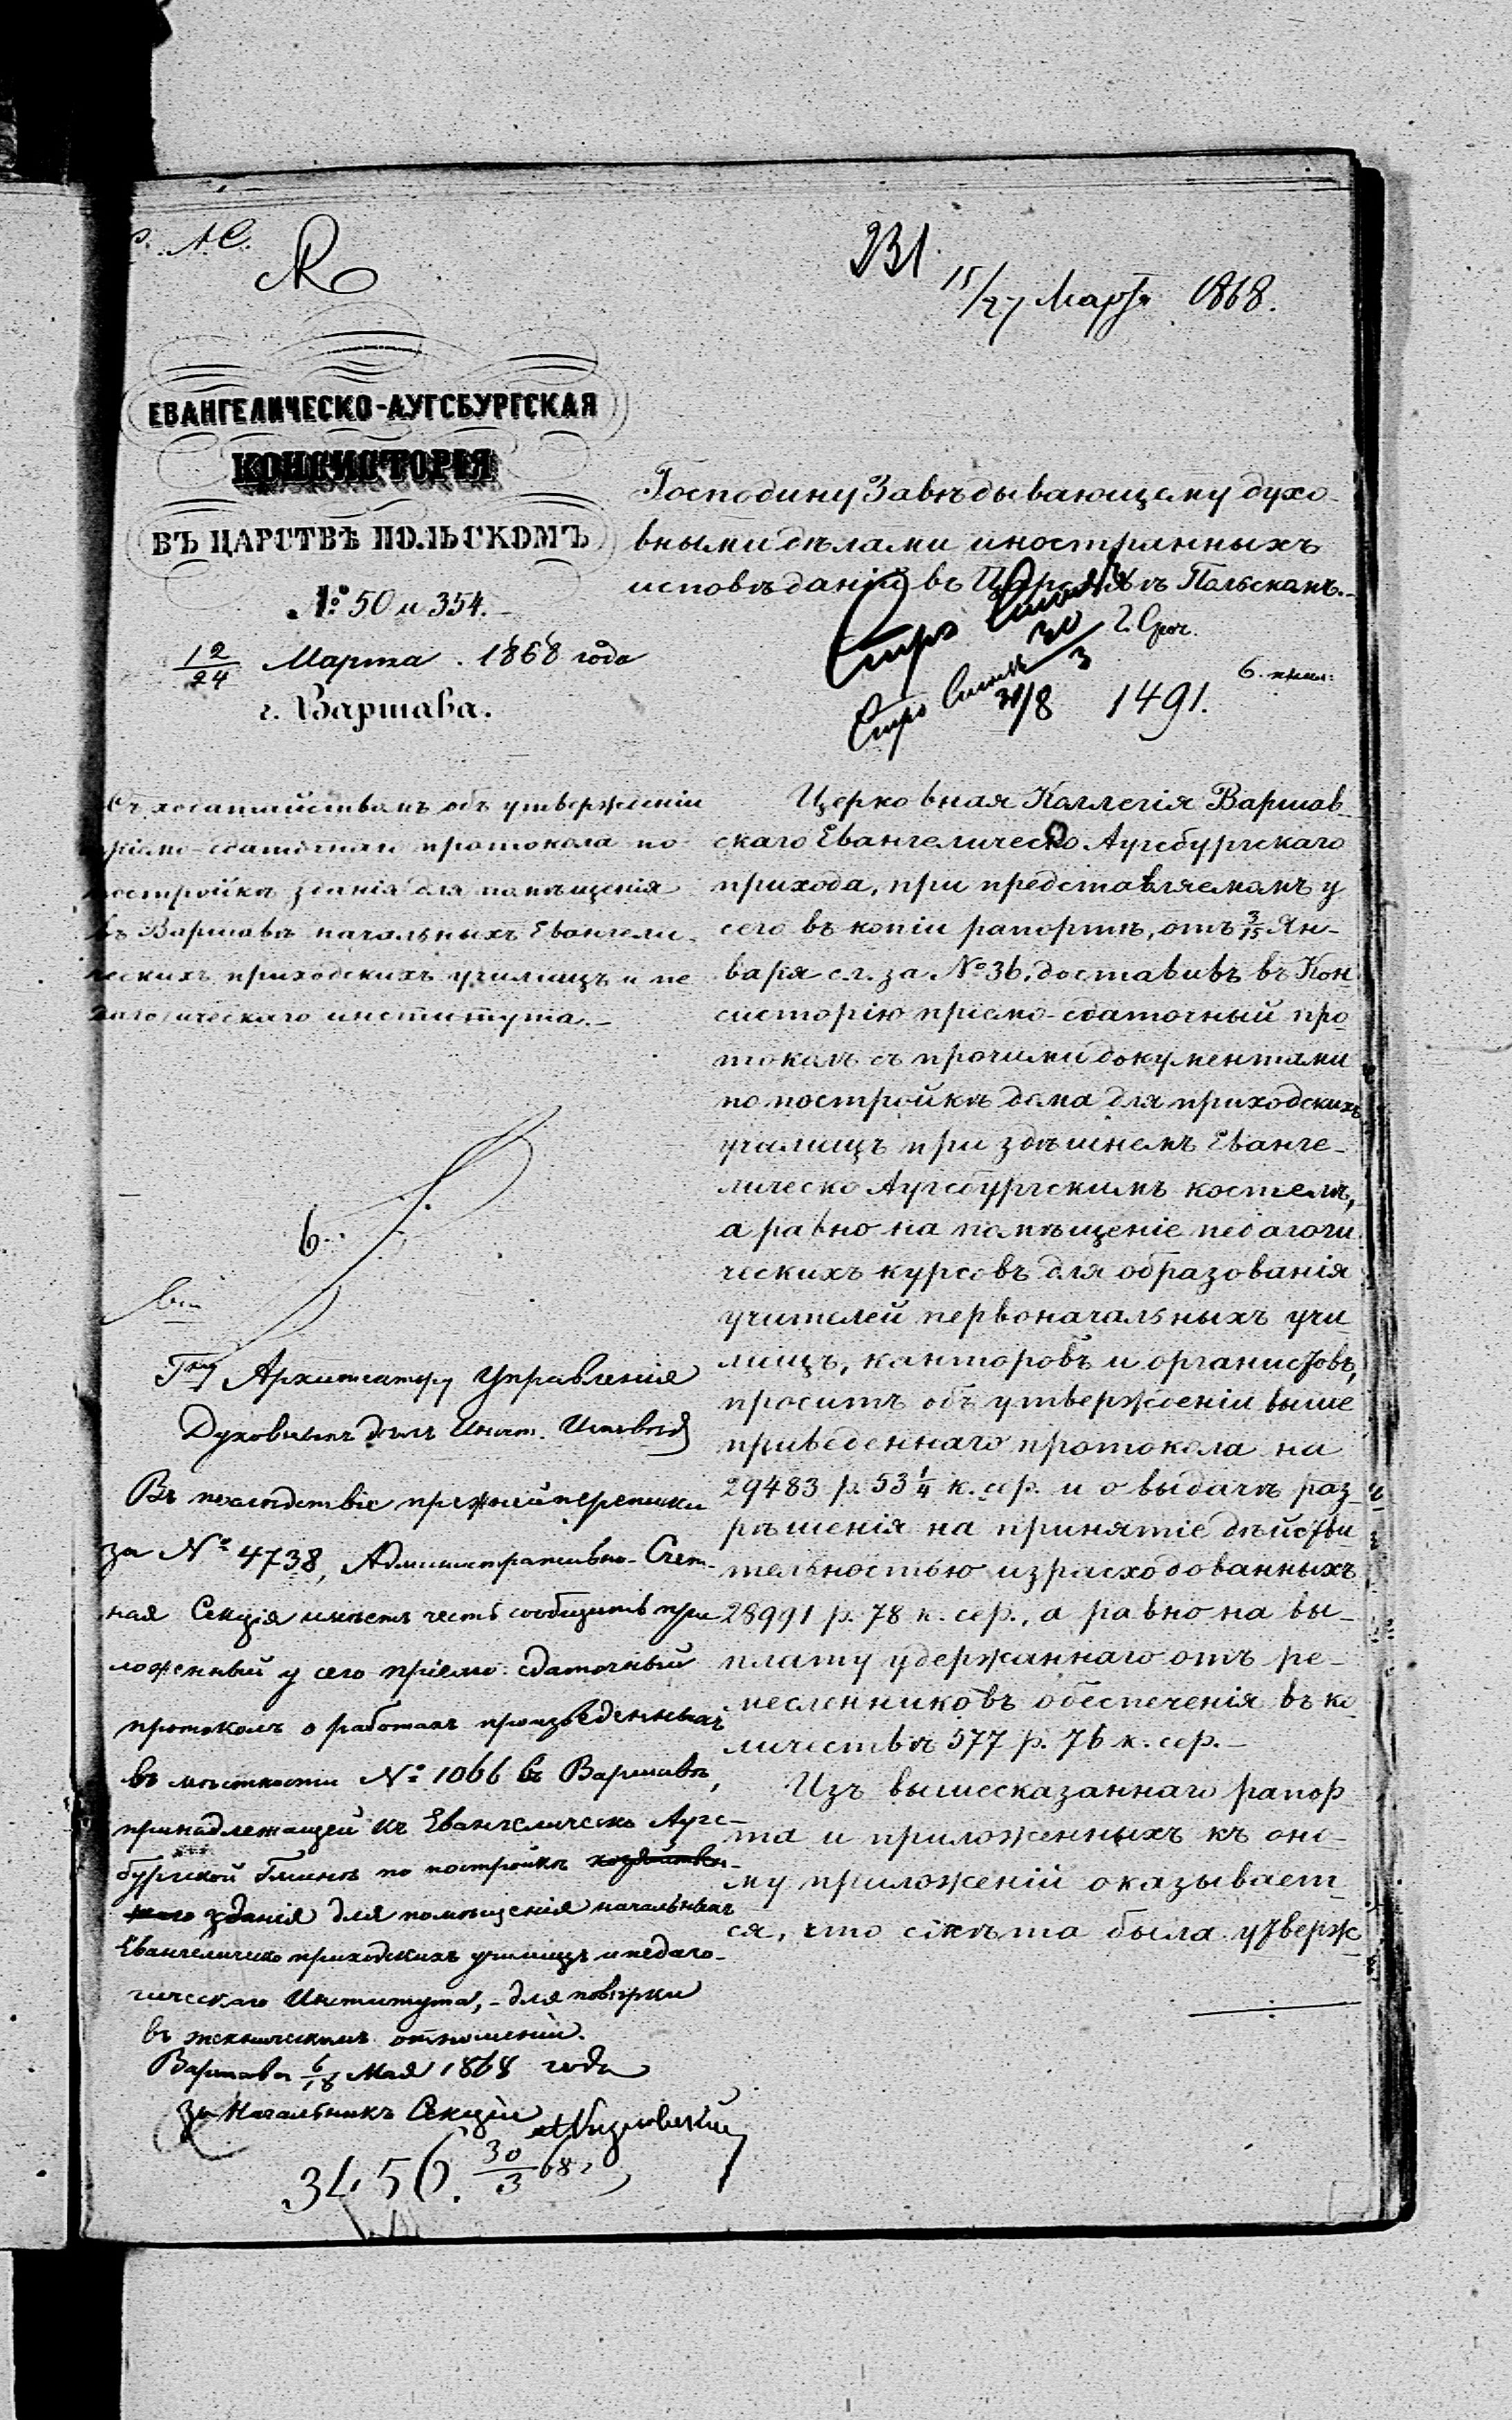 231.
15/27 Марта 1868.
ЕВАНГЕЛИЧЕСКО-АУГСБУРГСКАЯ
КОНСИСТОРІЯ
ВЪ ЦАРСТВѢ ПОЛЬСКОМЪ
№ 50 и 354.
12/24 Марта. 1868 года
г. Варшава.
Господину Завѣдывающему духо-
вными дѣлами иностранныхъ
исповѣданій въ Царствѣ Польскомъ.
30/3
31/8
1491.
6. прил:
Съ ходатайствомъ объ утвержденіи
пріемо-сдаточнаго протокола по
постройкѣ зданія для помѣщенія
въ Варшавѣ начальныхъ Евангели-
ческихъ приходскихъ училищъ и пе
дагогическаго института.-
Церковная Коллегія Варшав-
скаго Евангелическо Аугсбургскаго
прихода, при представляемомъ у
сего въ копіи рапортѣ, отъ 3/15 Ян-
варя с.г. за № 36, доставивъ въ Кон
систорію пріемо-сдаточный про
токолъ съ прочими документами
по постройкѣ дома для приходскихъ
училищъ при здѣшнемъ Еванге-
лическо Аугсбургскимъ костелѣ,
а равно на помѣщеніе педагоги
ческихъ курсовъ для образованія
учителей первоначальныхъ учи
лищъ, канторовъ и органистовъ,
проситъ объ утвержденіи выше
приведеннаго протокола на
29483 р. 53 1/4 к. сер. и о выдачѣ раз-
рѣшенія на принятіе дѣйстви
тельностью израсходованныхъ
28991 р. 78 к. сер., а равно на вы-
плату удержаннаго отъ ре-
месленниковъ обеспеченія въ ко
личествѣ 577 р. 76 к. сер.-
Изъ вышесказаннаго рапор
та и приложенныхъ къ оно-
му приложеній оказывает
ся, что смѣта была утверж
6.
Гну Архитектору Управленія
Духовныхъ дѣлъ Иност. Исповѣд
Въ послѣдствіе прежней переписки
за № 4738, Административно-Счет-
ная Секція имѣетъ честь сообщить при
ложенный у сего пріемо-сдаточный
протоколъ о работахъ произведенныхъ
въ мѣстности № 1066 въ Варшавѣ,
принадлежащей къ Евангелическо Аугс-
бургской Гминѣ по постройкѣ хозяйствен-
наго зданія для помѣщенія начальныхъ
Евангелическо приходскихъ училищъ и педаго-
гическаго Института, - для повѣрки
въ техническомъ отношеніи.
Варшава 6/18 Мая 1868 года
за Начальникъ Секціи
3456. 30/3 68 г